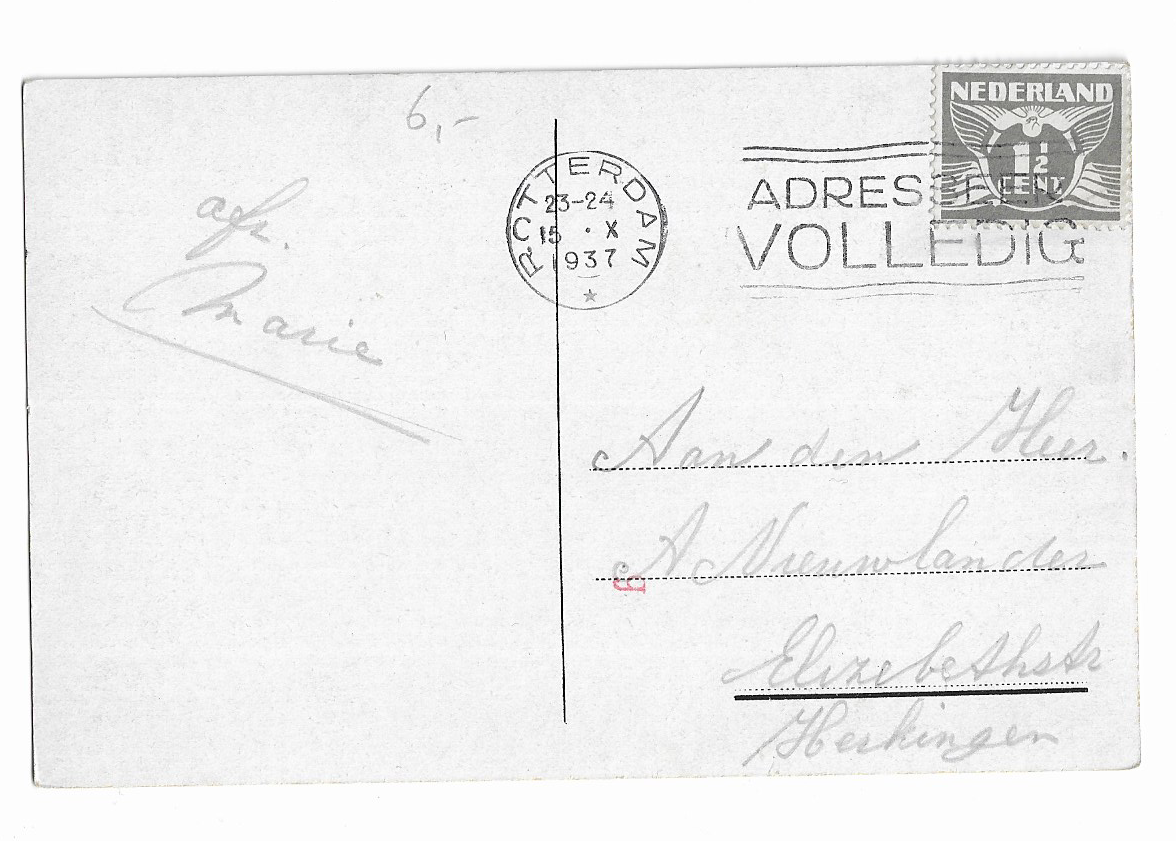 6,-
afz.
Marie
ROTTERDAM
23-24
15 . X
1937
ADRESSEER
VOLLEDIG
NEDERLAND
1 1/2
CENT
Aan den Heer.
A Nieuwlander
Elizebethstr
Herkingen